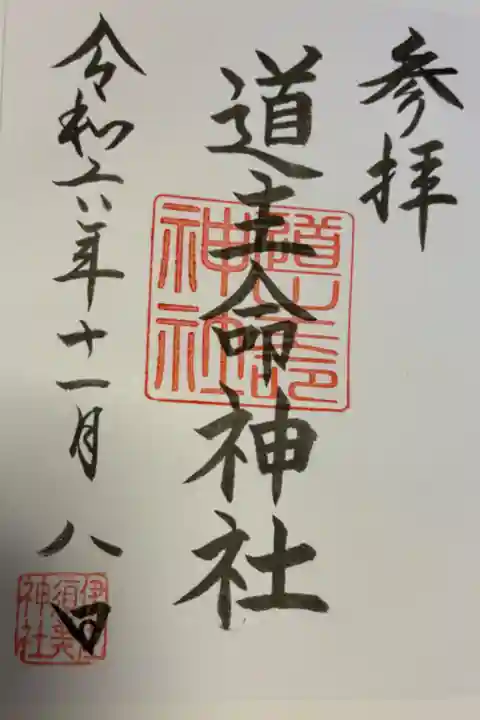 参拝
道主命神社
道主命
神社
令和六年十一月八日
伊佐
須美
神社